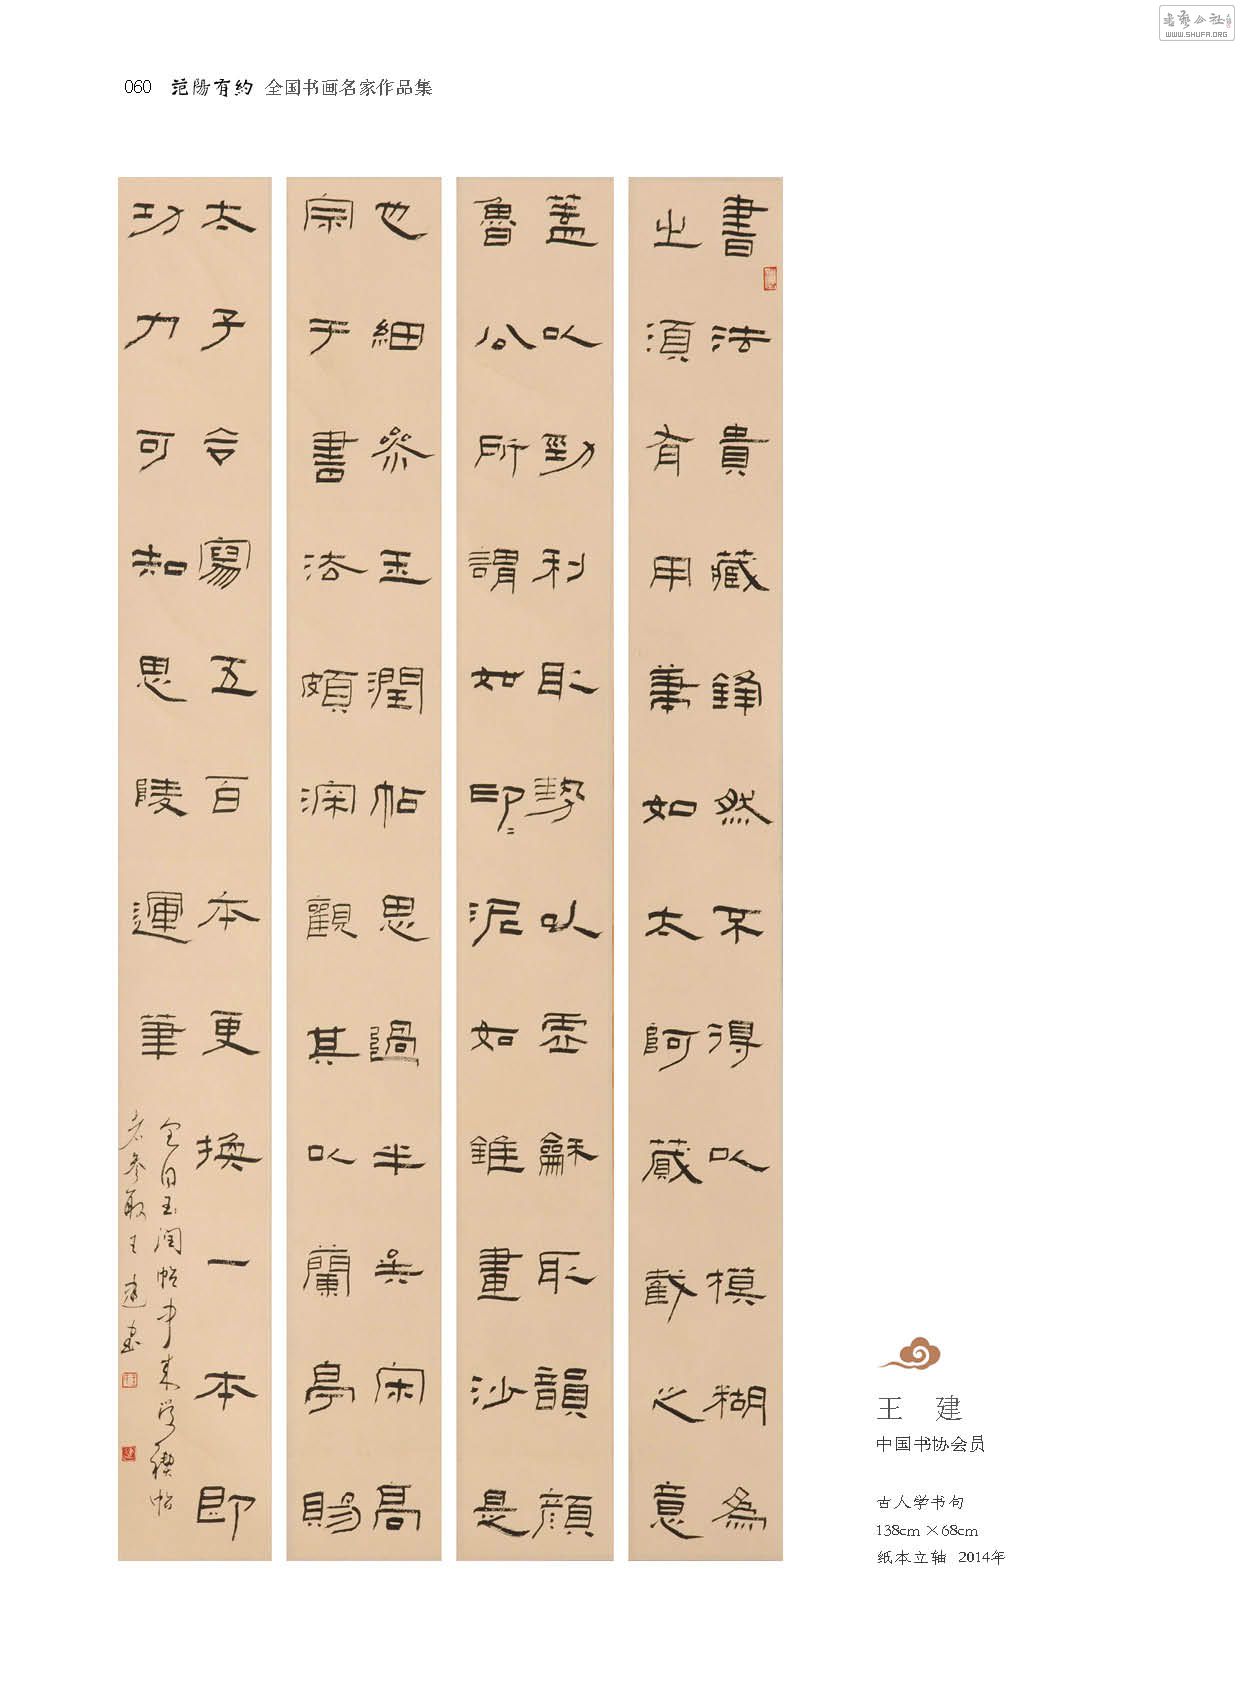 060 范陽有約 全国书画名家作品集
書法貴藏鋒然不得以模糊為
之須有用筆如太阿藏截之意
蓋以勁利取勢以虛龢取韻顏
魯公所謂如印〻泥如錐畫沙是
也細參玉潤帖思過半矣宋高
宗于書法頗深觀其以蘭亭賜
太子令寫五百本更換一本即
功力可知思陵運筆
全自玉润帖中来学禊帖
者参取王建书
王 建
中国书协会员
古人学书句
138cm×68cm
纸本立轴 2014年
书艺公社
WWW.SHUFA.ORG